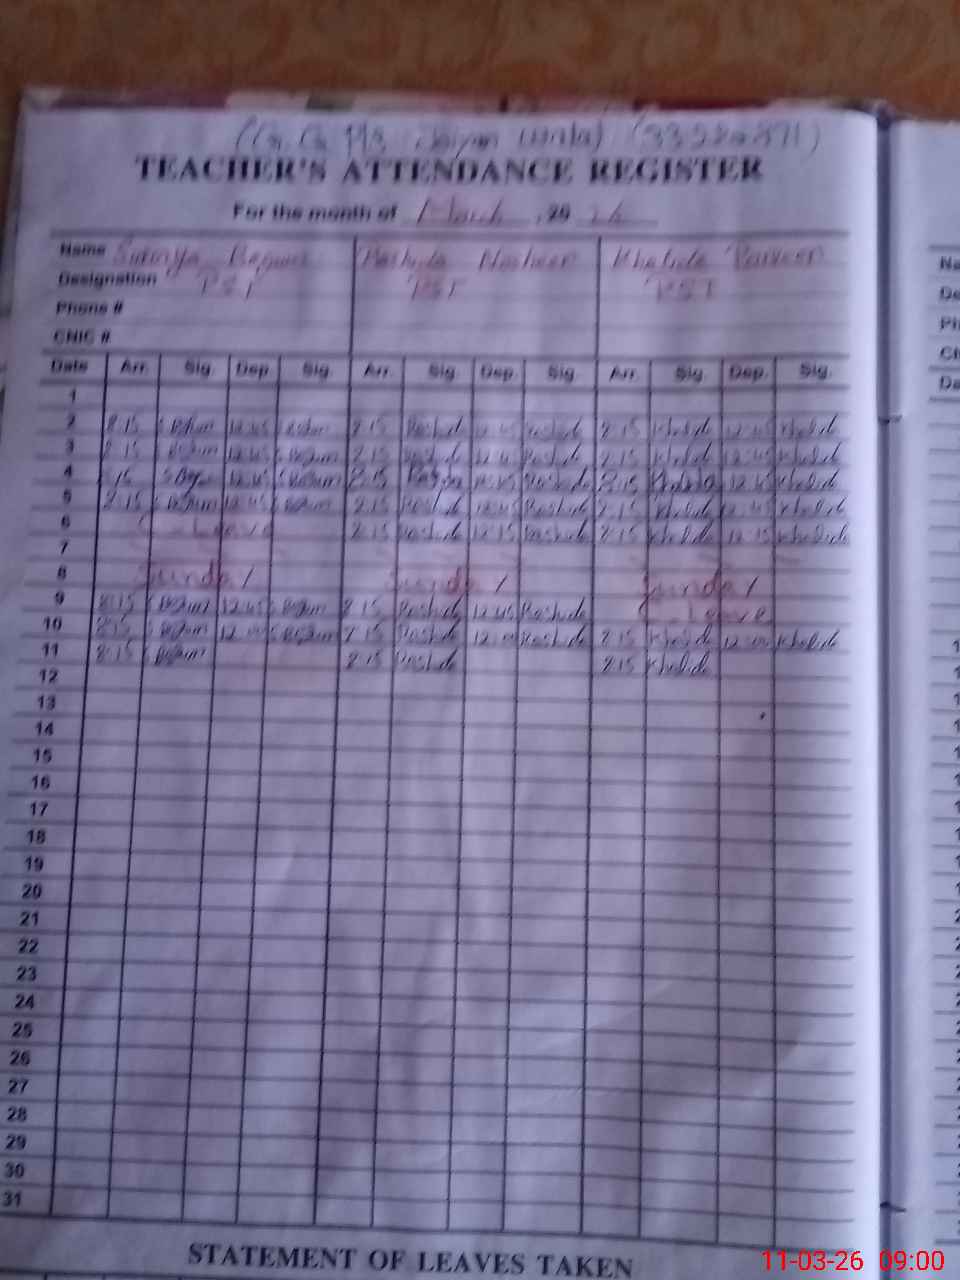 (G.G P/S Jaiyan wala) (33220871)
TEACHER'S ATTENDANCE REGISTER
For the month of March, 20 26
Name Surriya Begum Rashida Nasheen Khalida Parveen
Designation PST PST PST
Phone #
CNIC #
Date Arr. Sig. Dep. Sig. Arr. Sig. Dep. Sig. Arr. Sig. Dep. Sig.
1
2 8:15 Begum 12:45 Begum 8:15 Rashida 12:45 Rashida 8:15 Khalida 12:45 Khalida
3 8:15 Begum 12:45 Begum 8:15 Rashida 12:45 Rashida 8:15 Khalida 12:45 Khalida
4 8:15 Begum 12:45 Begum 8:15 Rashida 12:45 Rashida 8:15 Khalida 12:45 Khalida
5 8:15 Begum 12:45 Begum 8:15 Rashida 12:45 Rashida 8:15 Khalida 12:45 Khalida
6 C-Leave 8:15 Rashida 12:15 Rashida 8:15 Khalida 12:15 Khalida
7
8 Sunday Sunday Sunday
9 8:15 Begum 12:45 Begum 8:15 Rashida 12:45 Rashida C-Leave
10 8:15 Begum Begum 8:15 Rashida Rashida 8:15 Khalida Khalida
11 8:15 Begum 8:15 Rashida 8:15 Khalida
12
13
14
15
16
17
18
19
20
21
22
23
24
25
26
27
28
29
30
31
STATEMENT OF LEAVES TAKEN
11-03-26 09:00